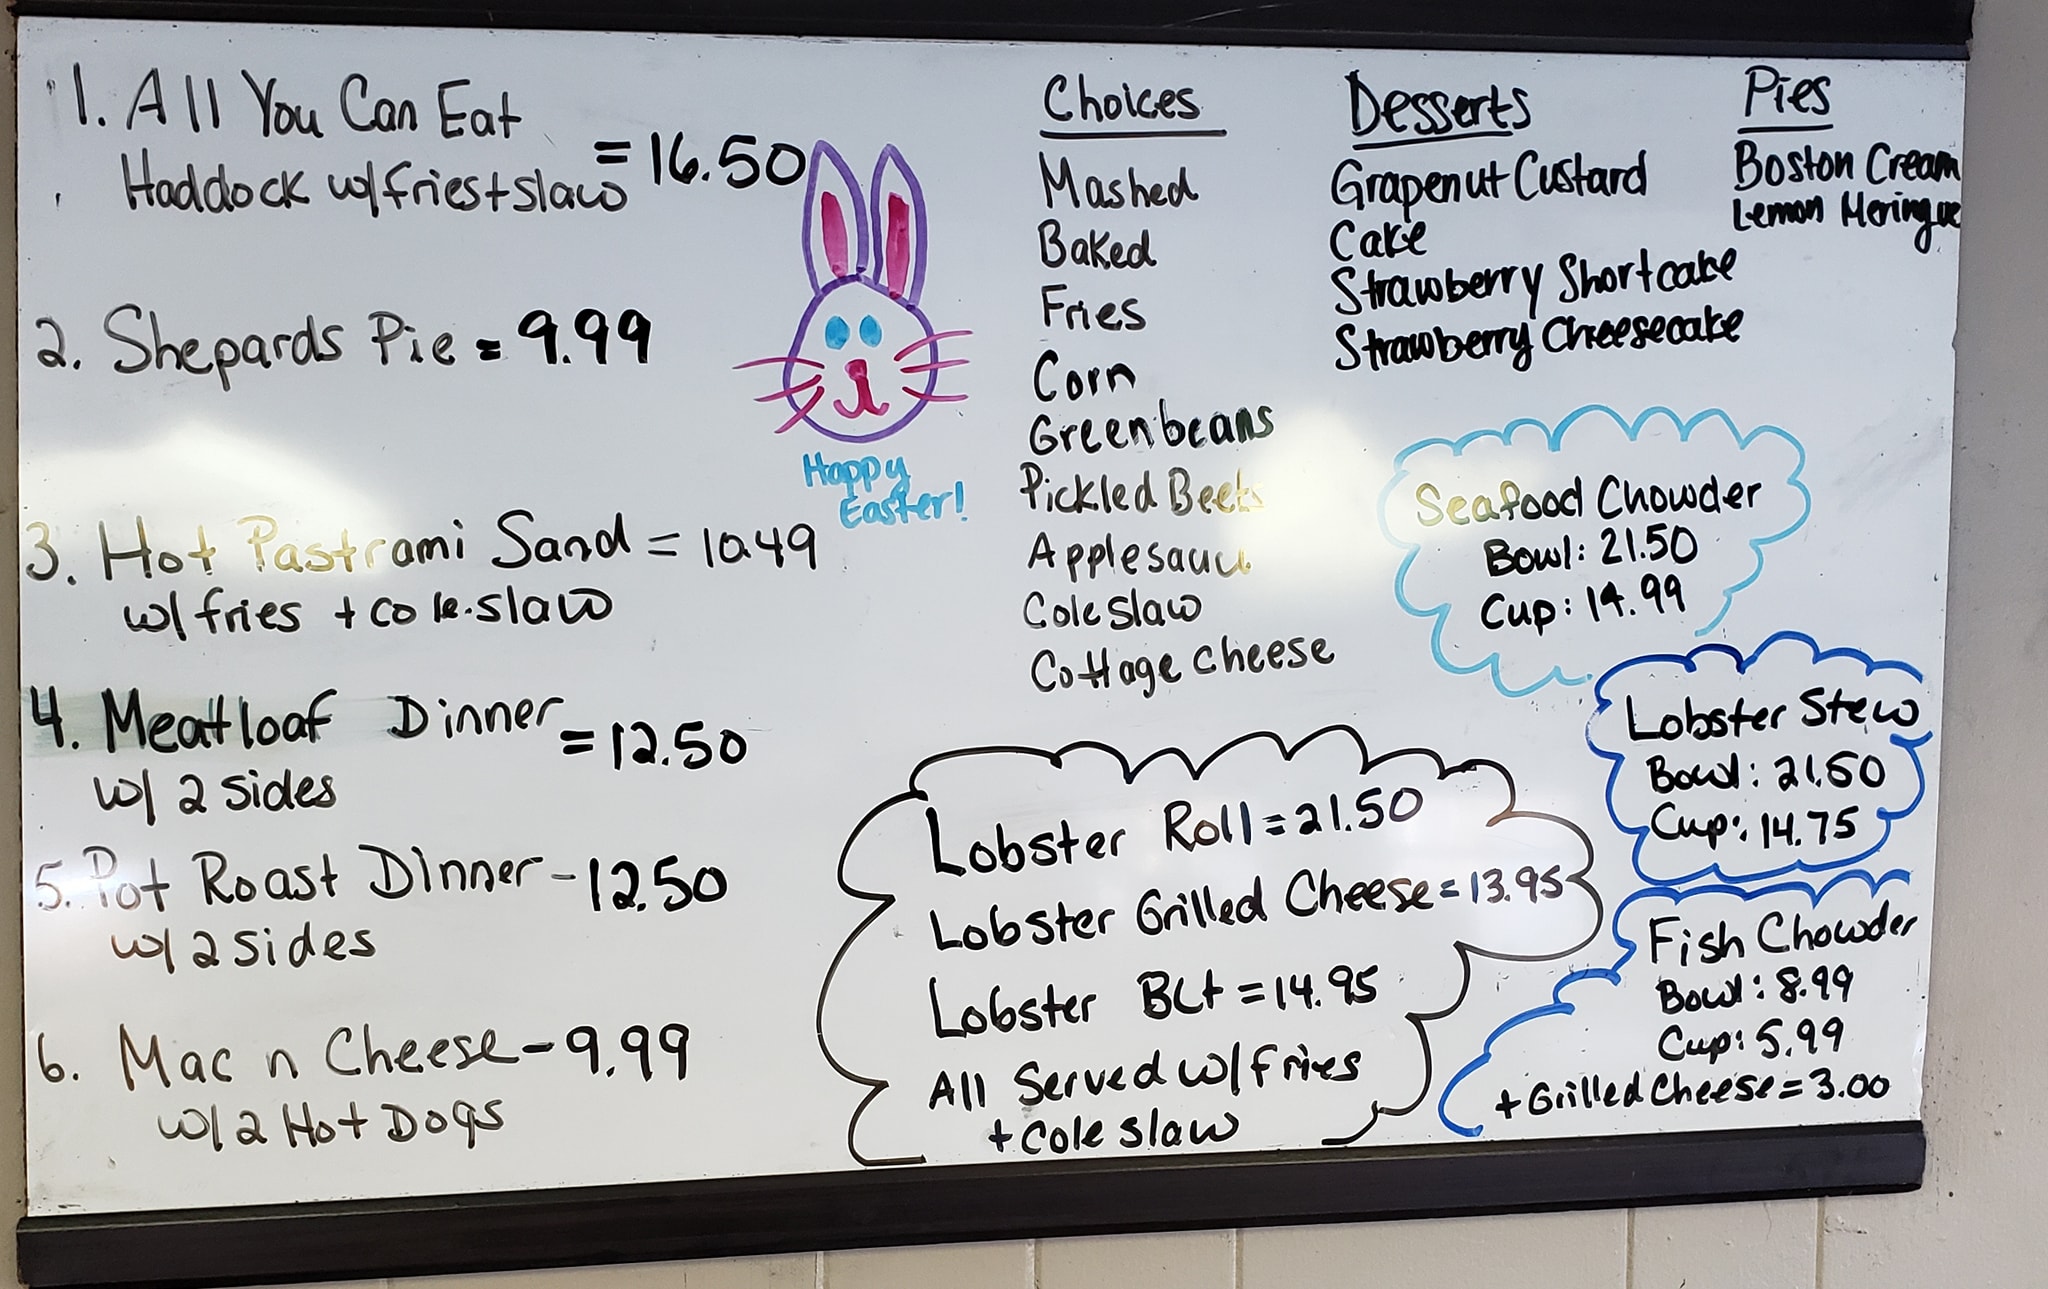 1. All You Can Eat
Haddock w/fries+slaw = 16.50
2. Shepards Pie = 9.99
3. Hot Pastrami Sand = 10.49
w/ fries + cole.slaw
4. Meatloaf Dinner = 12.50
w/ 2 sides
5. Pot Roast Dinner - 12.50
w/ 2 sides
6. Mac n Cheese - 9.99
w/ 2 Hot Dogs
Happy
Easter!
Choices
Mashed
Baked
Fries
Corn
Greenbeans
Pickled Beets
Applesauce
Cole slaw
Cottage cheese
Desserts
Grapenut Custard
Cake
Strawberry Shortcake
Strawberry Cheesecake
Pies
Boston Cream
Lemon Meringue
Seafood Chowder
Bowl: 21.50
Cup: 14.99
Lobster Stew
Bowl: 21.50
Cup: 14.75
Lobster Roll = 21.50
Lobster Grilled Cheese = 13.95
Lobster BLt = 14.95
All Served w/fries
+ Cole slaw
Fish Chowder
Bowl: 8.99
Cup: 5.99
+ Grilled Cheese = 3.00